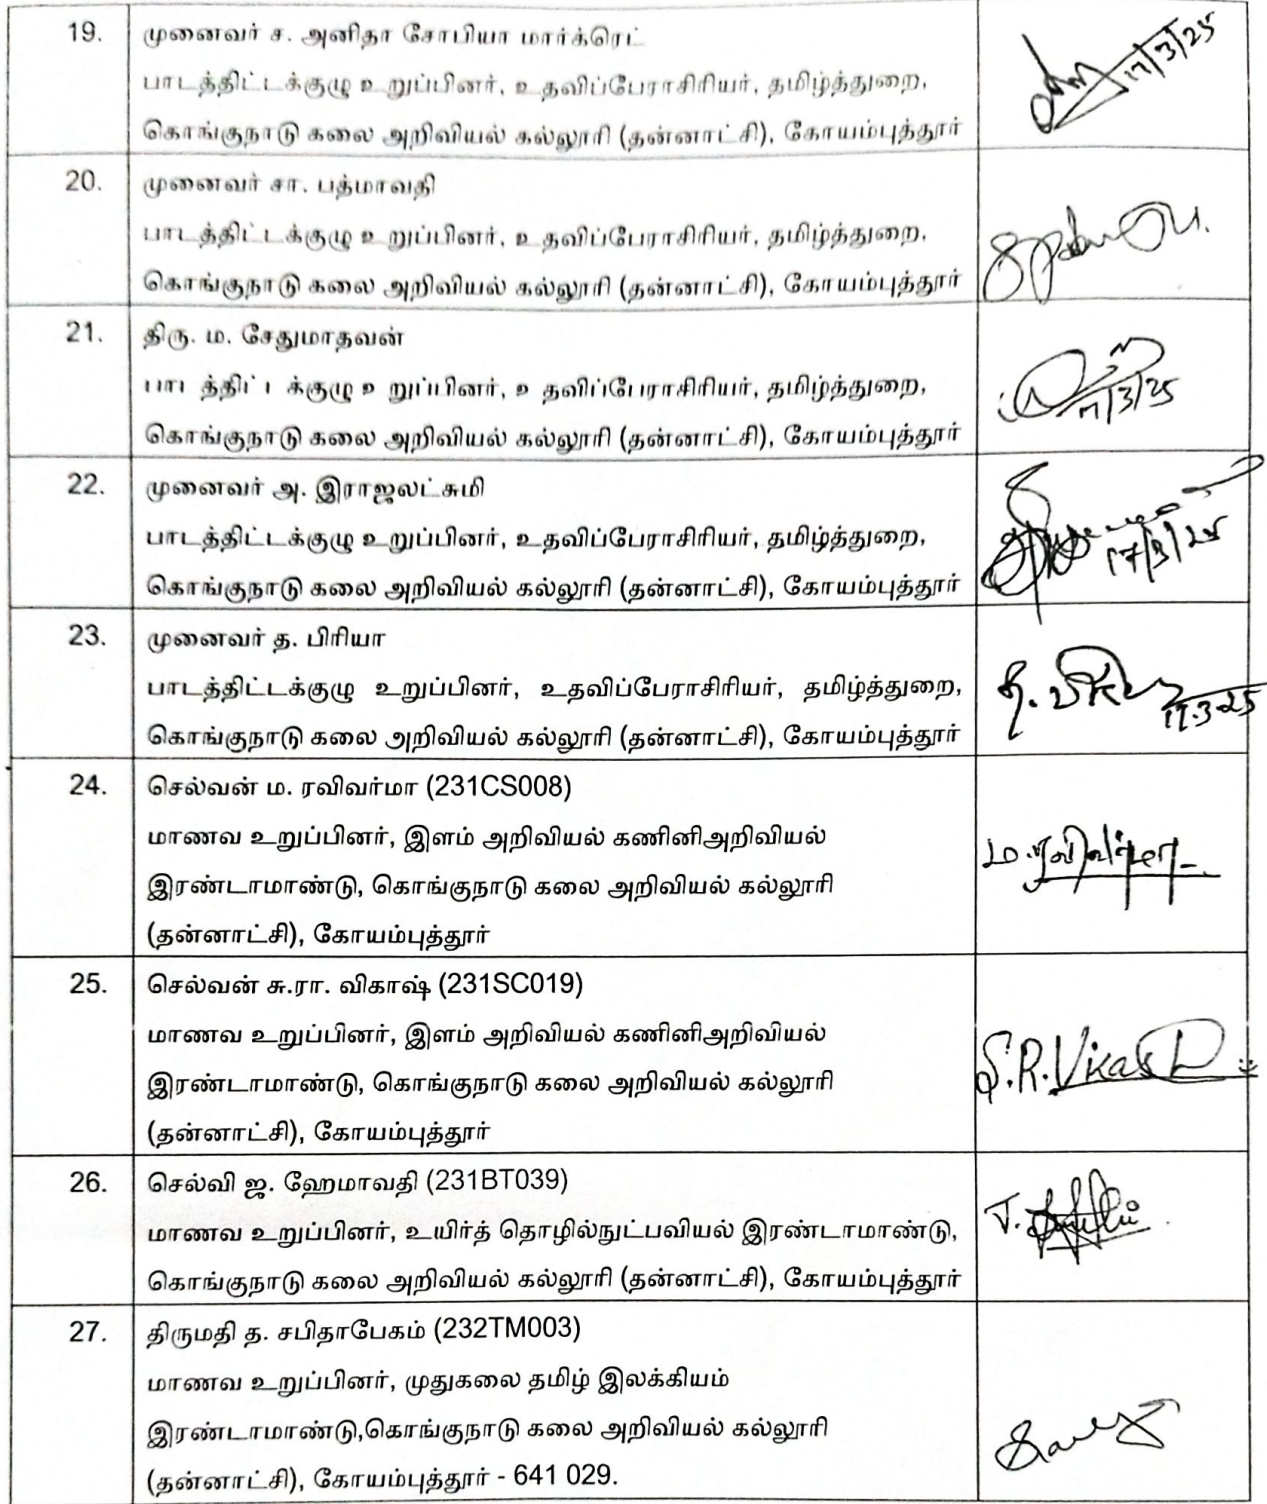 19. முனைவர் ச. அனிதா சோபியா மார்க்ரெட்
பாடத்திட்டக்குழு உறுப்பினர், உதவிப்பேராசிரியர், தமிழ்த்துறை,
17/3/25
கொங்குநாடு கலை அறிவியல் கல்லூரி (தன்னாட்சி), கோயம்புத்தூர்
20. முனைவர் சா. பத்மாவதி
பாடத்திட்டக்குழு உறுப்பினர், உதவிப்பேராசிரியர், தமிழ்த்துறை,
கொங்குநாடு கலை அறிவியல் கல்லூரி (தன்னாட்சி), கோயம்புத்தூர்
21. திரு. ம. சேதுமாதவன்
பாடத்திட்டக்குழு உறுப்பினர், உதவிப்பேராசிரியர், தமிழ்த்துறை,
17/3/25
கொங்குநாடு கலை அறிவியல் கல்லூரி (தன்னாட்சி), கோயம்புத்தூர்
22. முனைவர் அ. இராஜலட்சுமி
பாடத்திட்டக்குழு உறுப்பினர், உதவிப்பேராசிரியர், தமிழ்த்துறை,
17/3/25
கொங்குநாடு கலை அறிவியல் கல்லூரி (தன்னாட்சி), கோயம்புத்தூர்
23. முனைவர் த. பிரியா
பாடத்திட்டக்குழு உறுப்பினர், உதவிப்பேராசிரியர், தமிழ்த்துறை,
17.3.25
கொங்குநாடு கலை அறிவியல் கல்லூரி (தன்னாட்சி), கோயம்புத்தூர்
24. செல்வன் ம. ரவிவர்மா (231CS008)
மாணவ உறுப்பினர், இளம் அறிவியல் கணினிஅறிவியல்
ம.ரவிவர்மா
இரண்டாமாண்டு, கொங்குநாடு கலை அறிவியல் கல்லூரி
(தன்னாட்சி), கோயம்புத்தூர்
25. செல்வன் சு.ரா. விகாஷ் (231SC019)
மாணவ உறுப்பினர், இளம் அறிவியல் கணினிஅறிவியல்
S.R.Vikash
இரண்டாமாண்டு, கொங்குநாடு கலை அறிவியல் கல்லூரி
(தன்னாட்சி), கோயம்புத்தூர்
26. செல்வி ஜ. ஹேமாவதி (231BT039)
மாணவ உறுப்பினர், உயிர்த் தொழில்நுட்பவியல் இரண்டாமாண்டு,
கொங்குநாடு கலை அறிவியல் கல்லூரி (தன்னாட்சி), கோயம்புத்தூர்
27. திருமதி த. சபிதாபேகம் (232TM003)
மாணவ உறுப்பினர், முதுகலை தமிழ் இலக்கியம்
இரண்டாமாண்டு,கொங்குநாடு கலை அறிவியல் கல்லூரி
(தன்னாட்சி), கோயம்புத்தூர் - 641 029.